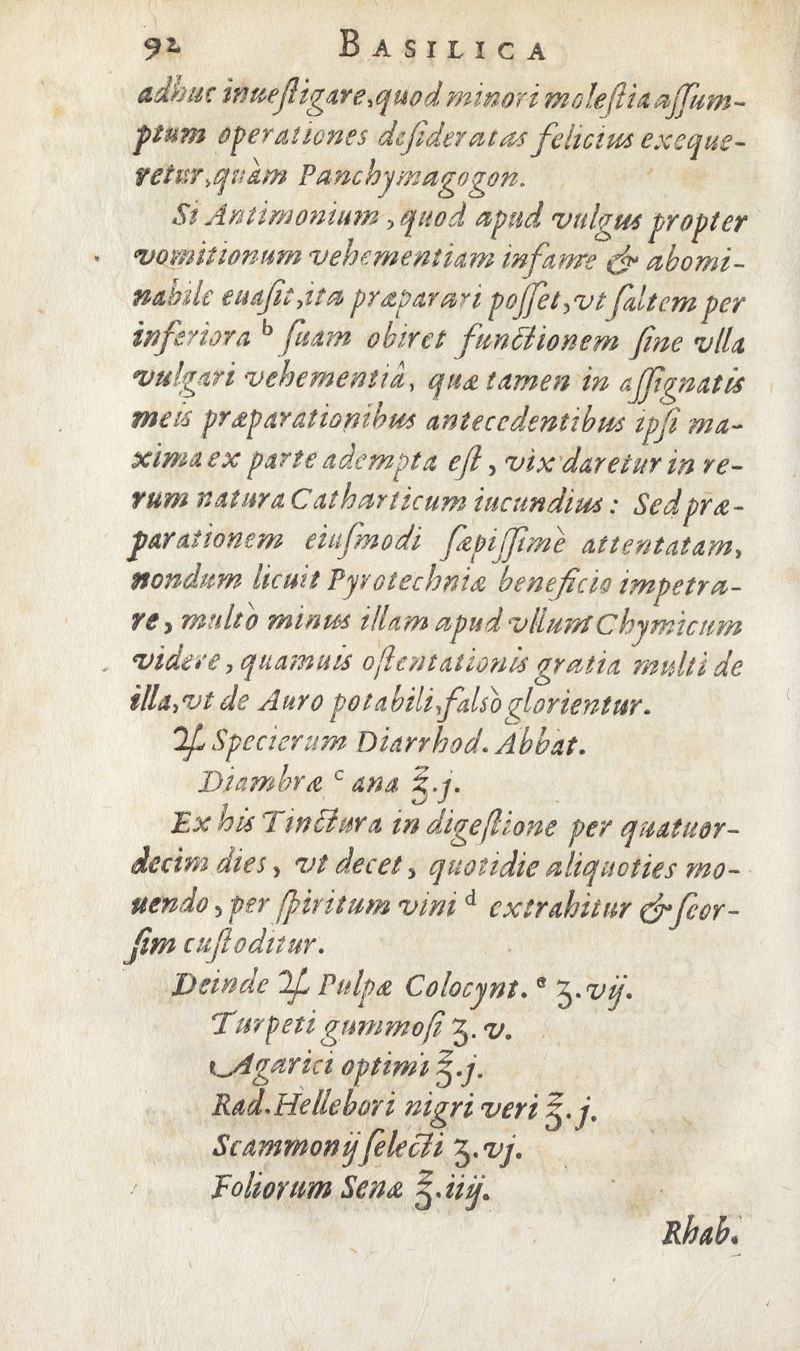 92 BASILICA
adhuc inueſtigare, quod minori moleſtia aſſum-
ptum operationes deſideratas felicius exeque-
retur, quàm Panchymagogon.
Si Antimonium, quod apud vulgus propter
vomitionum vehementiam infame & abomi-
nabile euaſit, ita præparari poſſet, vt ſaltem per
inferiora b ſuam obiret functionem ſine vlla
vulgari vehementiâ, quæ tamen in aſſignatis
meis præparationibus antecedentibus ipſi ma-
xima ex parte adempta eſt, vix daretur in re-
rum natura Catharticum iucundius: Sed præ-
parationem eiuſmodi ſæpiſſimè attentatam,
nondum licuit Pyrotechniæ beneficio impetra-
re, multò minus illam apud vllum Chymicum
videre, quamuis oſtentationis gratia multi de
illa, vt de Auro potabili, falsò glorientur.
♃ Specierum Diarrhod. Abbat.
Diambræ c ana ℥.j.
Ex his Tinctura in digeſtione per quatuor-
decim dies, vt decet, quotidie aliquoties mo-
uendo, per ſpiritum vini d extrahitur & ſeor-
ſim cuſtoditur.
Deinde ♃ Pulpæ Colocynt. e ʒ.vij.
Turpeti gummoſi ʒ.v.
Agarici optimi ℥.j.
Rad. Hellebori nigri veri ℥.j.
Scammonij ſelecti ʒ.vj.
Foliorum Senæ ℥.iiij.
Rhab.